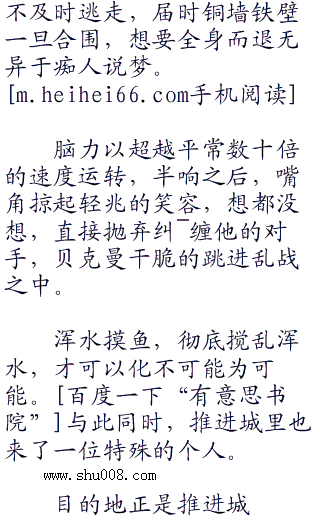 不及时逃走，届时铜墙铁壁
一旦合围，想要全身而退无
异于痴人说梦。
[m.heihei66.com手机阅读]
脑力以超越平常数十倍
的速度运转，半响之后，嘴
角掠起轻兆的笑容，想都没
想，直接抛弃纠¯缠他的对
手，贝克曼干脆的跳进乱战
之中。
浑水摸鱼，彻底搅乱浑
水，才可以化不可能为可
能。[百度一下“有意思书
院”]与此同时，推进城里也
来了一位特殊的个人。
www.shu008.com
目的地正是推进城